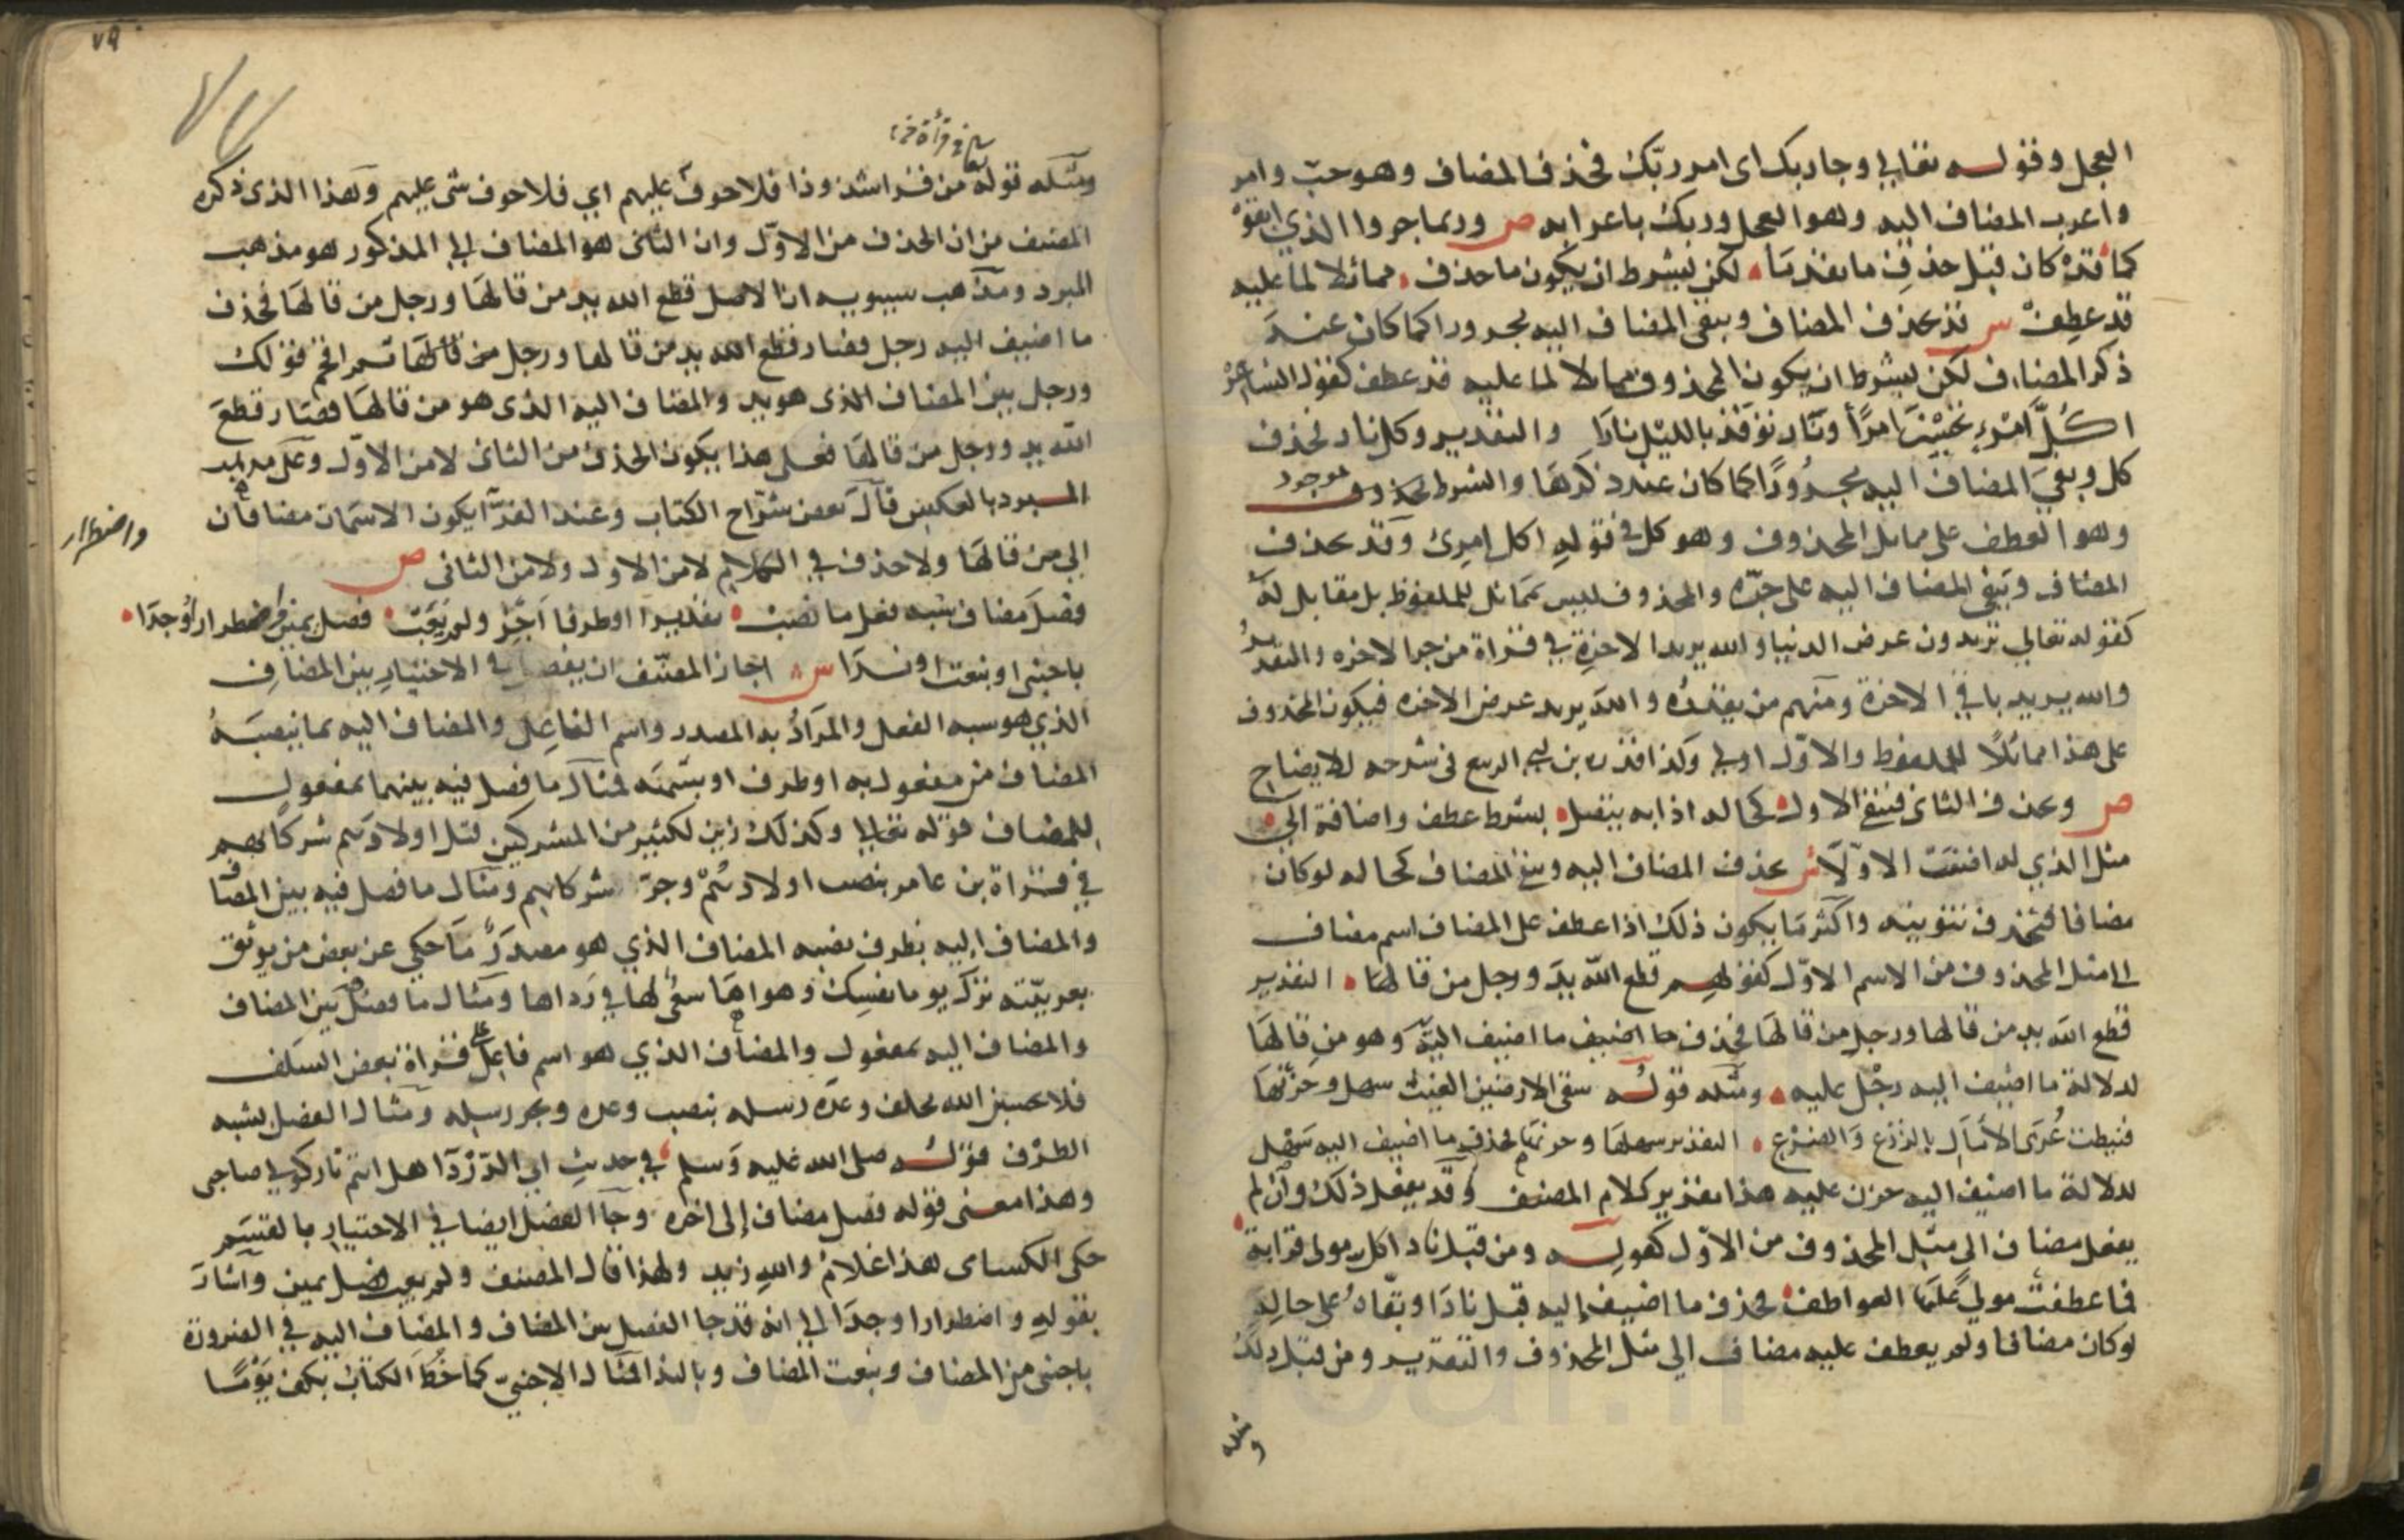 العجل وقوله تعالى وجا ربك اى امر ربك فحذف المضاف وهو حب وامر
واعرب المضاف اليه وهو العجل وربك باعرابه ص وربما جروا الذي ابقوا
كما قد كان قبل حذف ما تقدما لكن بشرط ان يكون ما حذف مماثلا لما عليه
قد عطف س قد يحذف المضاف ويبقى المضاف اليه مجرورا كما كان عند
ذكر المضاف لكن بشرط ان يكون المحذوف مماثلا لما عليه قد عطف كقول الشاعر
اكل امرء تحسبين امرأ ونار توقد بالليل نارا والتقدير وكل نار فحذف
كل وبقي المضاف اليه مجرورا كما كان عند ذكرها والشرط موجود
وهو العطف على مماثل المحذوف وهو كل في قوله اكل امرئ وقد يحذف
المضاف ويبقى المضاف اليه على جره والمحذوف ليس مماثل للملفوظ بل مقابل له
كقوله تعالى تريدون عرض الدنيا والله يريد الاخرة في قراة من جر الاخره والتقدير
والله يريد باقي الاخرة ومنهم من يقدره والله يريد عرض الاخره فيكون المحذوف
على هذا مماثلا للملفوظ والاول اولى وكذا قدره بن ابي الربيع فى شرحه للايضاح
ص ويحذف الثانى فيبقى الاول كحاله اذا به يتصل بشرط عطف واضافة الى
مثل الذي له اضفت الاولا س يحذف المضاف اليه ويبقى المضاف كحاله لو كان
مضافا فيحذف تنوينه واكثر ما يكون ذلك اذا عطف على المضاف اسم مضاف
الى مثل المحذوف من الاسم الاول كقولهم قطع الله يد ورجل من قالها التقدير
قطع الله يد من قالها ورجل من قالها فحذف ما اضيف اليه يد وهو من قالها
لدلالة ما اضيف اليه رجل عليه ومثله قوله سقى الارضين الغيث سهل وحزنها
فنيطت عرى الأمال بالزرع والضرع التقدير سهلها وحزنها فحذف ما اضيف اليه سهل
لدلالة ما اضيف اليه حزن عليه هذا تقدير كلام المصنف وقد يفعل ذلك وان لم
يعطف مضاف الى مثل المحذوف من الاول كقوله ومن قبل نادا كل مولى قرابة
فما عطفت مولى علينا العواطف فحذف ما اضيف إليه قبل نادا وبقاه على حاله
لو كان مضافا ولم يعطف عليه مضاف الى مثل المحذوف والتقدير ومن قبل ذلك
ومثله
٧٩
تعالى في قراة
ومثله قوله من قرا شذوذا فلا خوف عليهم اي فلا خوف شى عليهم وهذا الذى ذكره
المصنف من ان الحذف من الاول وان الثانى هو المضاف الى المذكور هو مذهب
المبرد ومذهب سيبويه ان الاصل قطع الله يد من قالها ورجل من قالها فحذف
ما اضيف اليه رجل فصار قطع الله يد من قالها ورجل من قالها ثم اقحم قولك
ورجل بين المضاف الذى هو يد والمضاف اليه الذى هو من قالها فصار قطع
الله يد ورجل من قالها فعلى هذا يكون الحذف من الثانى لا من الاول وعلى مذهب
المبرد بالعكس قال بعض شراح الكتاب وعند الفرا يكون الاسمان مضافان
الى من قالها ولا حذف في الكلام لا من الاول ولا من الثانى ص
واضطرار
فصل مضاف شبه فعل ما نصب مفعولا او ظرفا اجز ولم يعب فصل يمين واضطرارا وجدا
باجنبى او بنعت او ندا س اجاز المصنف ان يفصل في الاختيار بين المضاف
الذي هو شبه الفعل والمراد به المصدر واسم الفاعل والمضاف اليه بما ينصبه
المضاف من مفعول به او ظرف او شبهه فمثال ما فصل فيه بينهما بمفعول
المضاف قوله تعالى وكذلك زين لكثير من المشركين قتل اولادهم شركائهم
في قراة بن عامر بنصب اولادهم وجر شركائهم ومثال ما فصل فيه بين المضاف
والمضاف إليه بظرف نصبه المضاف الذي هو مصدر ما حكي عن بعض من يوثق
بعربيته ترك يوما نفسك وهواها سعى لها في رداها ومثال ما فصل بين المضاف
والمضاف اليه بمفعول والمضاف الذي هو اسم فاعل قراة بعض السلف
فلا تحسبن الله مخلف وعده رسله بنصب وعده وجر رسله ومثال الفصل بشبه
الظرف قوله صلى الله عليه وسلم في حديث ابي الدردا هل انتم تاركو لي صاحبى
وهذا معنى قوله فصل مضاف إلى اخره وجا الفصل ايضا في الاختيار بالقسم
حكى الكسائى هذا غلام والله زيد ولهذا قال المصنف ولم يعب فصل يمين واشار
بقوله واضطرارا وجدا الى انه قد جا الفصل بين المضاف والمضاف اليه في الضرورة
باجنبى من المضاف وبنعت المضاف وبالندا فمثال الاجنبى كما خط الكتاب بكف يوما